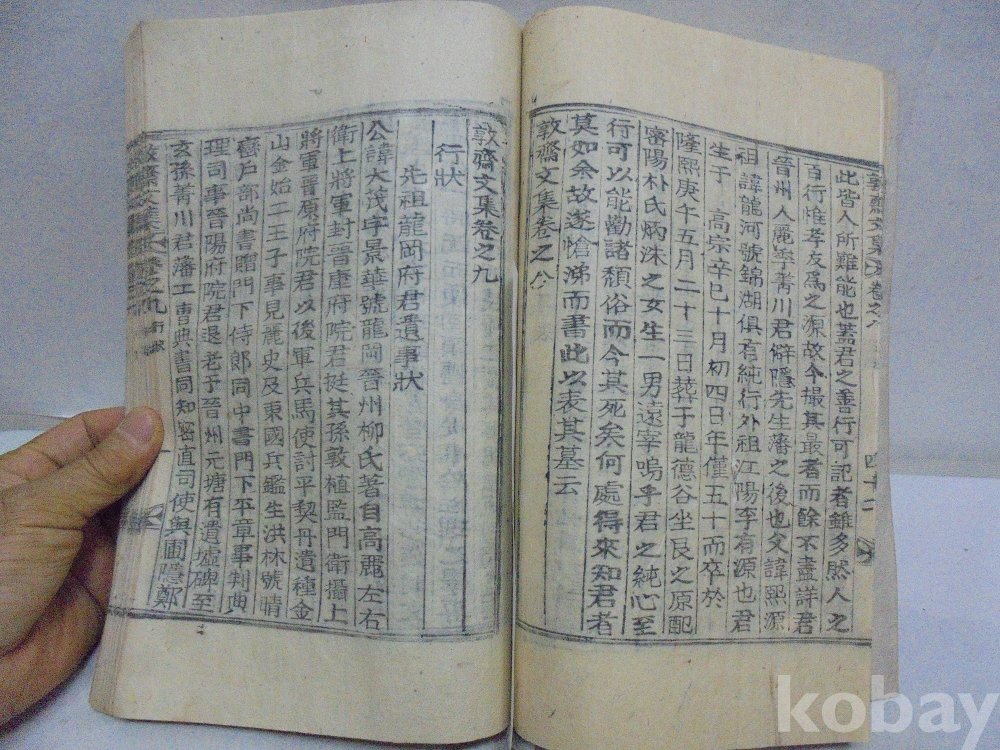 此皆人所難能也蓋君之善行可記者雖多然人之
百行惟孝友爲之源故今撮其最者而餘不盡詳君
晉州人麗季菁川君僻隱先生藩之後也父諱熙源
祖諱龍河號錦湖俱有純行外祖江陽李有源也君
生于 高宗辛巳十月初四日年僅五十而卒於
隆熙庚午五月二十三日葬于龍德谷坐艮之原配
密陽朴氏炳洙之女生一男遠宰嗚乎君之純心至
行可以能勸諸頹俗而今其死矣何處得來知君者
莫如余故遂愴涕而書此以表其墓云
敦齋文集卷之八
敦齋文集卷之九
行狀
先祖龍岡府君遺事狀
公諱大茂字景華號龍岡晉州柳氏著自高麗左右
衛上將軍封晉康府院君挺其孫敦植監門衛攝上
將軍晉原府院君以後軍兵馬使討平契丹遺種金
山金始二王子事見麗史及東國兵鑑生洪林號晴
巒戶部尚書贈門下侍郞同中書門下平章事判典
理司事晉陽府院君退老于晉州元塘有遺墟碑至
玄孫菁川君藩工曹典書同知密直司使與圃隱鄭
kobay